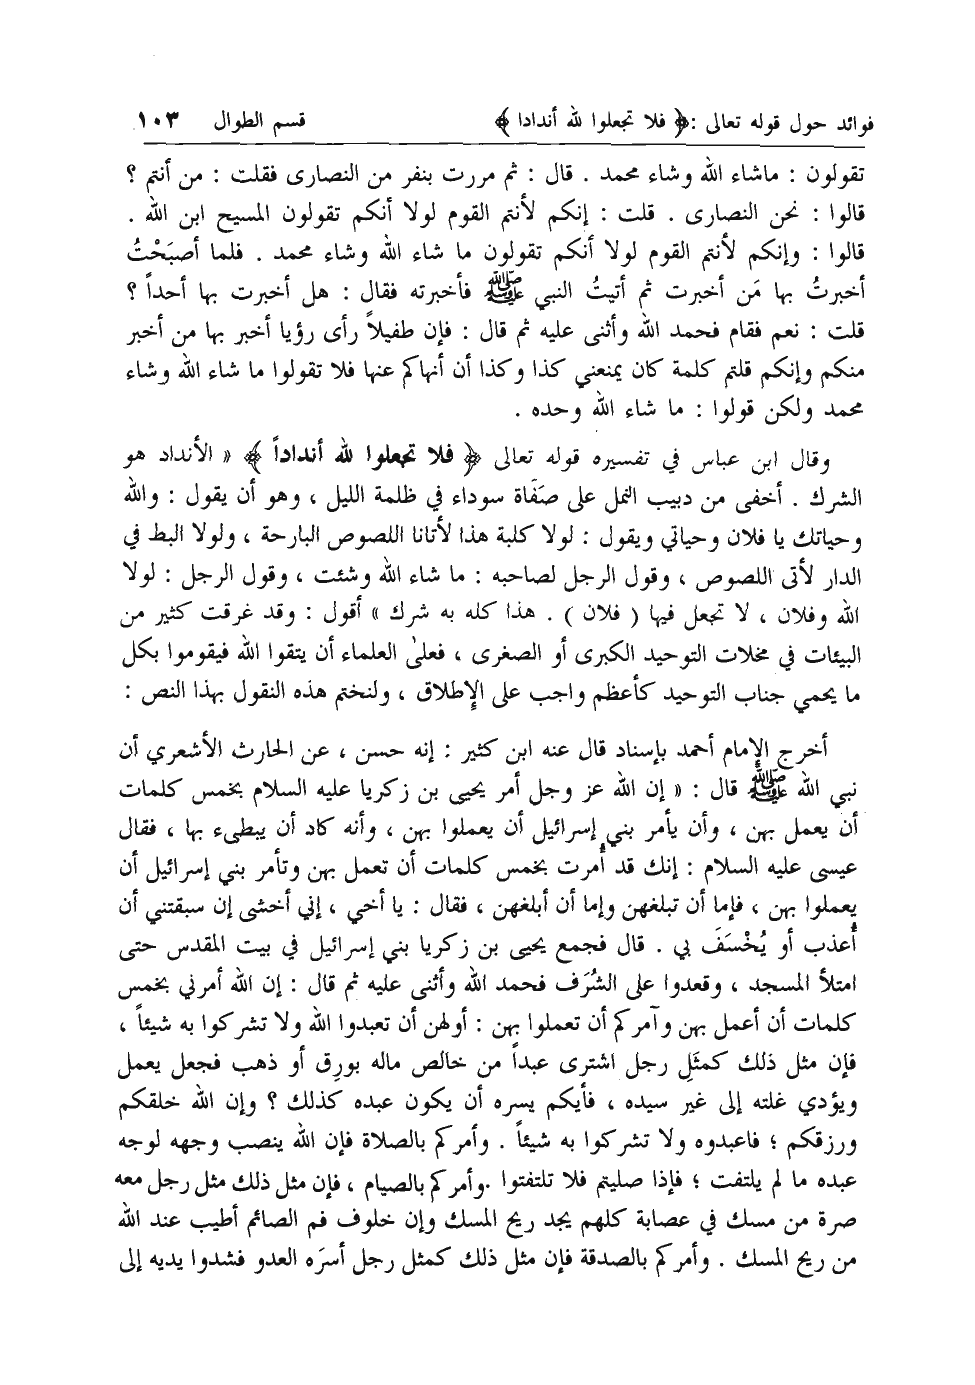 فوائد حول قوله تعالى :﴿ فلا تجعلوا لله أندادا ﴾ قسم الطوال ١٠٣
تقولون : ماشاء الله وشاء محمد . قال : ثم مررت بنفر من النصارى فقلت : من أنتم ؟
قالوا : نحن النصارى . قلت : إنكم لأنتم القوم لولا أنكم تقولون المسيح ابن الله .
قالوا : وإنكم لأنتم القوم لولا أنكم تقولون ما شاء الله وشاء محمد . فلما أصبَحْتُ
أخبرتُ بها مَن أخبرت ثم أتيتُ النبي ﷺ فأخبرته فقال : هل أخبرت بها أحداً ؟
قلت : نعم فقام فحمد الله وأثنى عليه ثم قال : فإن طفيلاً رأى رؤيا أخبر بها من أخبر
منكم وإنكم قلتم كلمة كان يمنعني كذا وكذا أن أنهاكم عنها فلا تقولوا ما شاء الله وشاء
محمد ولكن قولوا : ما شاء الله وحده .
وقال ابن عباس في تفسيره قوله تعالى ﴿ فلا تجعلوا لله أنداداً ﴾ « الأنداد هو
الشرك . أخفى من دبيب النمل على صَفَاة سوداء في ظلمة الليل ، وهو أن يقول : والله
وحياتك يا فلان وحياتي ويقول : لولا كلبة هذا لأتانا اللصوص البارحة ، ولولا البط في
الدار لأتى اللصوص ، وقول الرجل لصاحبه : ما شاء الله وشئت ، وقول الرجل : لولا
الله وفلان ، لا تجعل فيها ( فلان ) . هذا كله به شرك » أقول : وقد غرقت كثير من
البيئات في مخلات التوحيد الكبرى أو الصغرى ، فعلى العلماء أن يتقوا الله فيقوموا بكل
ما يحمي جناب التوحيد كأعظم واجب على الإطلاق ، ولنختم هذه النقول بهذا النص :
أخرج الإمام أحمد بإسناد قال عنه ابن كثير : إنه حسن ، عن الحارث الأشعري أن
نبي الله ﷺ قال : « إن الله عز وجل أمر يحيى بن زكريا عليه السلام بخمس كلمات
أن يعمل بهن ، وأن يأمر بني إسرائيل أن يعملوا بهن ، وأنه كاد أن يبطىء بها ، فقال
عيسى عليه السلام : إنك قد أُمرت بخمس كلمات أن تعمل بهن وتأمر بني إسرائيل أن
يعملوا بهن ، فإما أن تبلغهن وإما أن أبلغهن ، فقال : يا أخي ، إني أخشى إن سبقتني أن
أُعذب أو يُخْسَفَ بي . قال فجمع يحيى بن زكريا بني إسرائيل في بيت المقدس حتى
امتلأ المسجد ، وقعدوا على الشُرَف فحمد الله وأثنى عليه ثم قال : إن الله أمرني بخمس
كلمات أن أعمل بهن وآمركم أن تعملوا بهن : أولهن أن تعبدوا الله ولا تشركوا به شيئاً ،
فإن مثل ذلك كمثَلِ رجل اشترى عبداً من خالص ماله بورِق أو ذهب فجعل يعمل
ويؤدي غلته إلى غير سيده ، فأيكم يسره أن يكون عبده كذلك ؟ وإن الله خلقكم
ورزقكم ؛ فاعبدوه ولا تشركوا به شيئاً . وأمركم بالصلاة فإن الله ينصب وجهه لوجه
عبده ما لم يلتفت ؛ فإذا صليتم فلا تلتفتوا .وأمركم بالصيام ، فإن مثل ذلك مثل رجل معه
صرة من مسك في عصابة كلهم يجد ريح المسك وإن خلوف فم الصائم أطيب عند الله
من ريح المسك . وأمركم بالصدقة فإن مثل ذلك كمثل رجل أسرَه العدو فشدوا يديه إلى